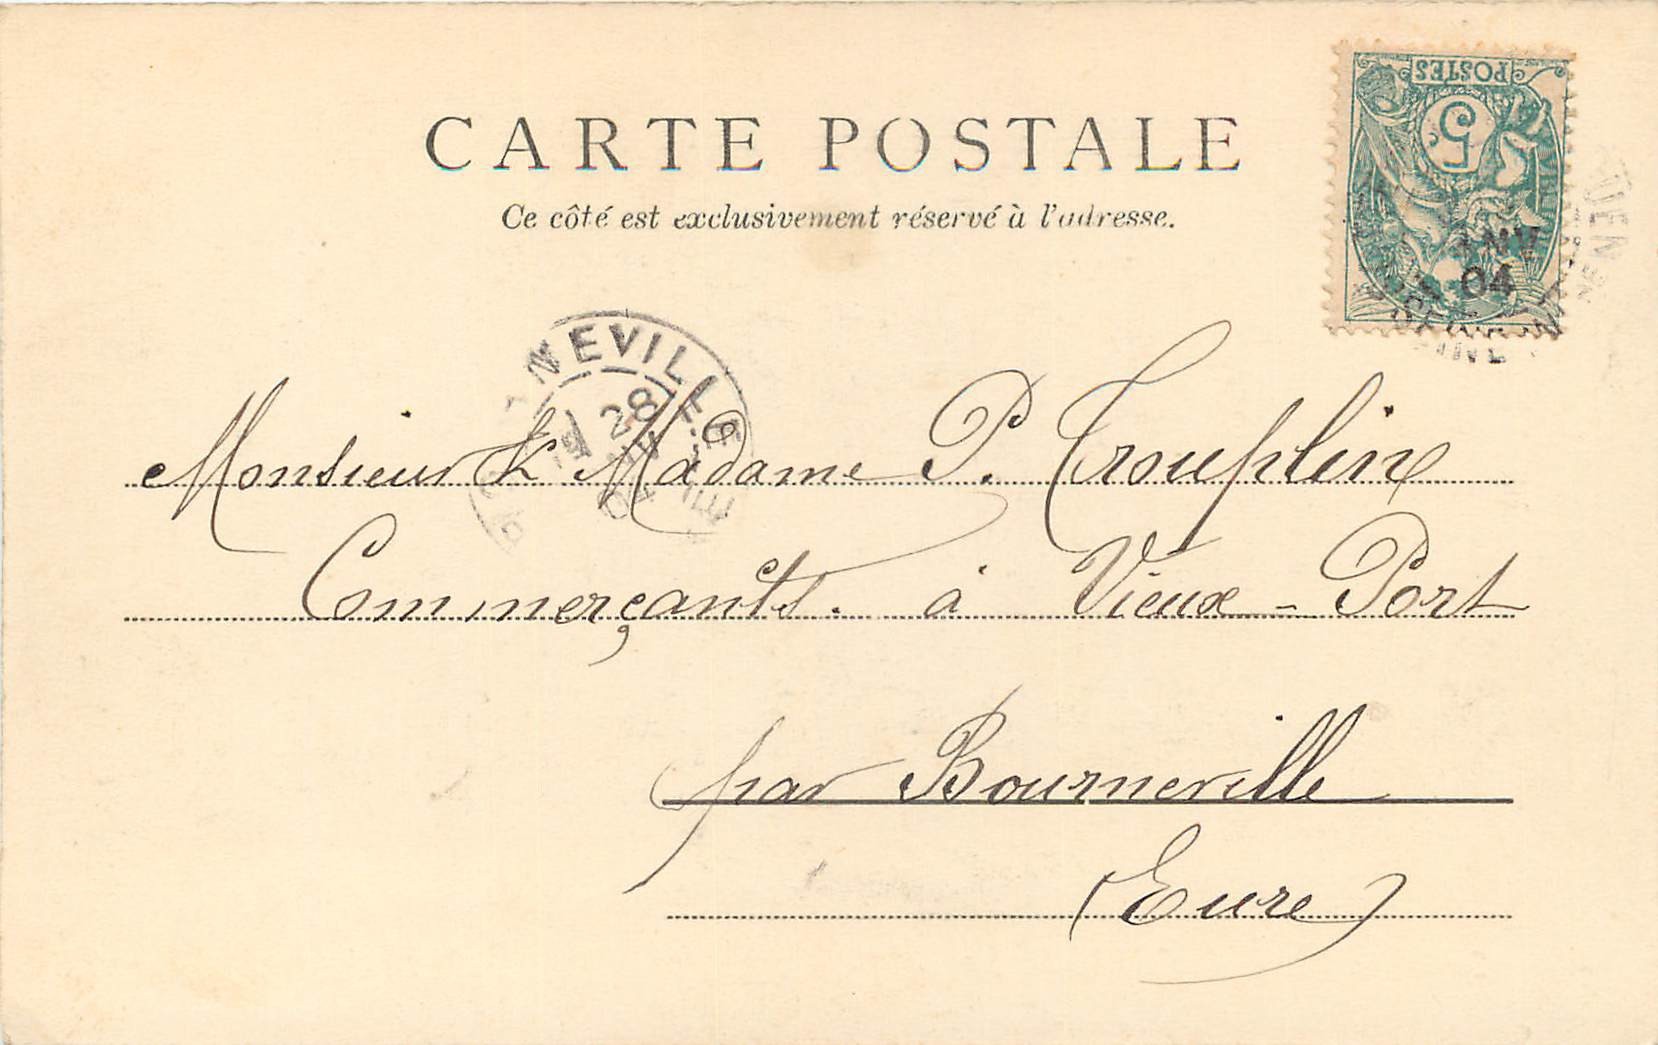 CARTE POSTALE
Ce côté est exclusivement réservé à l'adresse.
POSTES
5
JANV
04
NEVILLE
28
04
Monsieur & Madame P. Trouplin
Commerçants. à Vieux-Port
par Bourneville
(Eure)